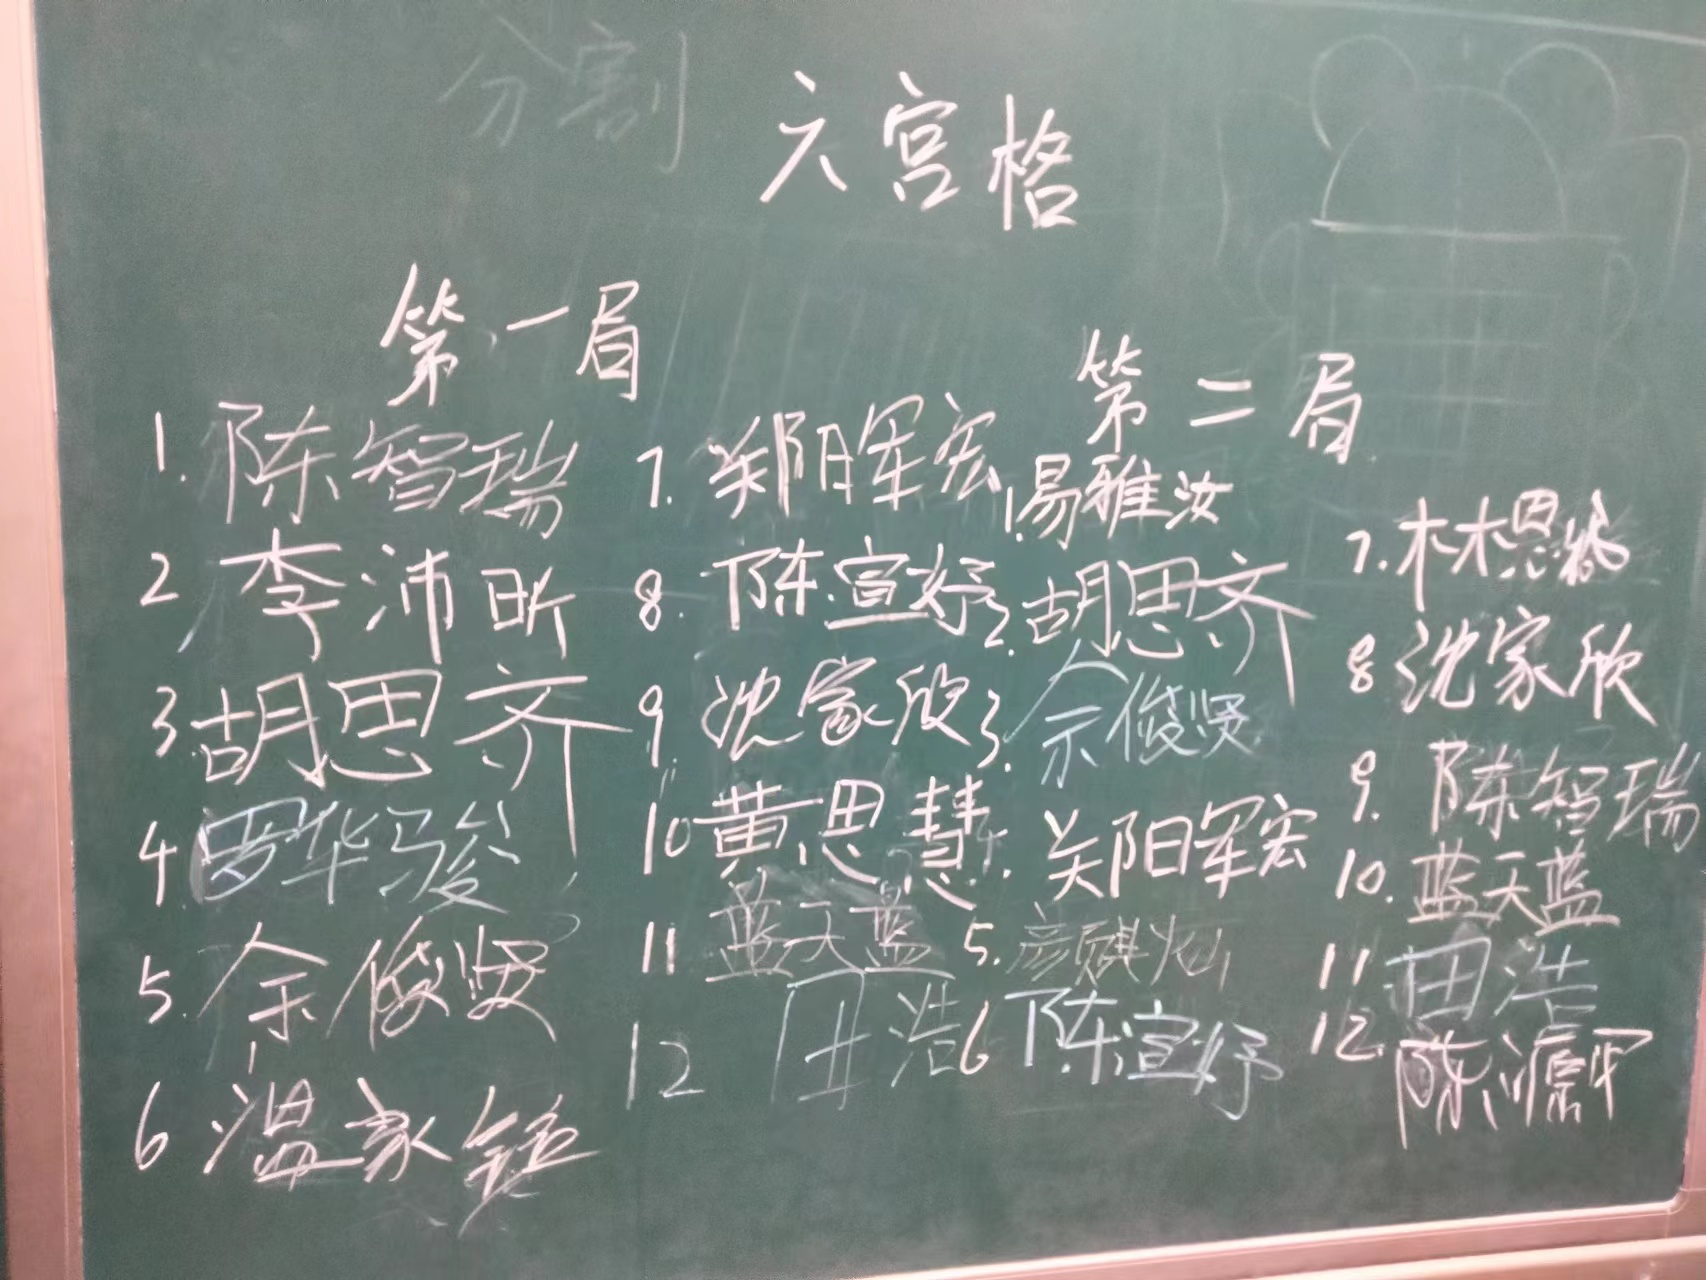 分割
六宫格
第一局
1. 陈智瑞
2 李沛昕
3 胡思齐
4. 罗华骏
5. 余俊贤
6 温家
7. 郑阳军宏
8. 陈宣妤
9. 沈家欣
10 黄思慧
11 蓝天蓝
12 田浩
第二局
1. 易雅汝
2. 胡思齐
3. 余俊贤
4. 郑阳军宏
5. 彦
6 陈宣妤
7. 林恩
8 沈家欣
9. 陈智瑞
10. 蓝天蓝
11 田浩
12. 陈